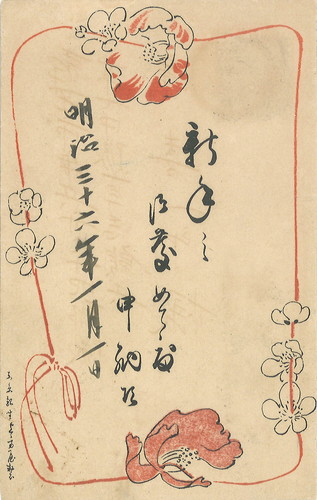 新年之
御慶めで度
申納候
明治三十六年一月一日